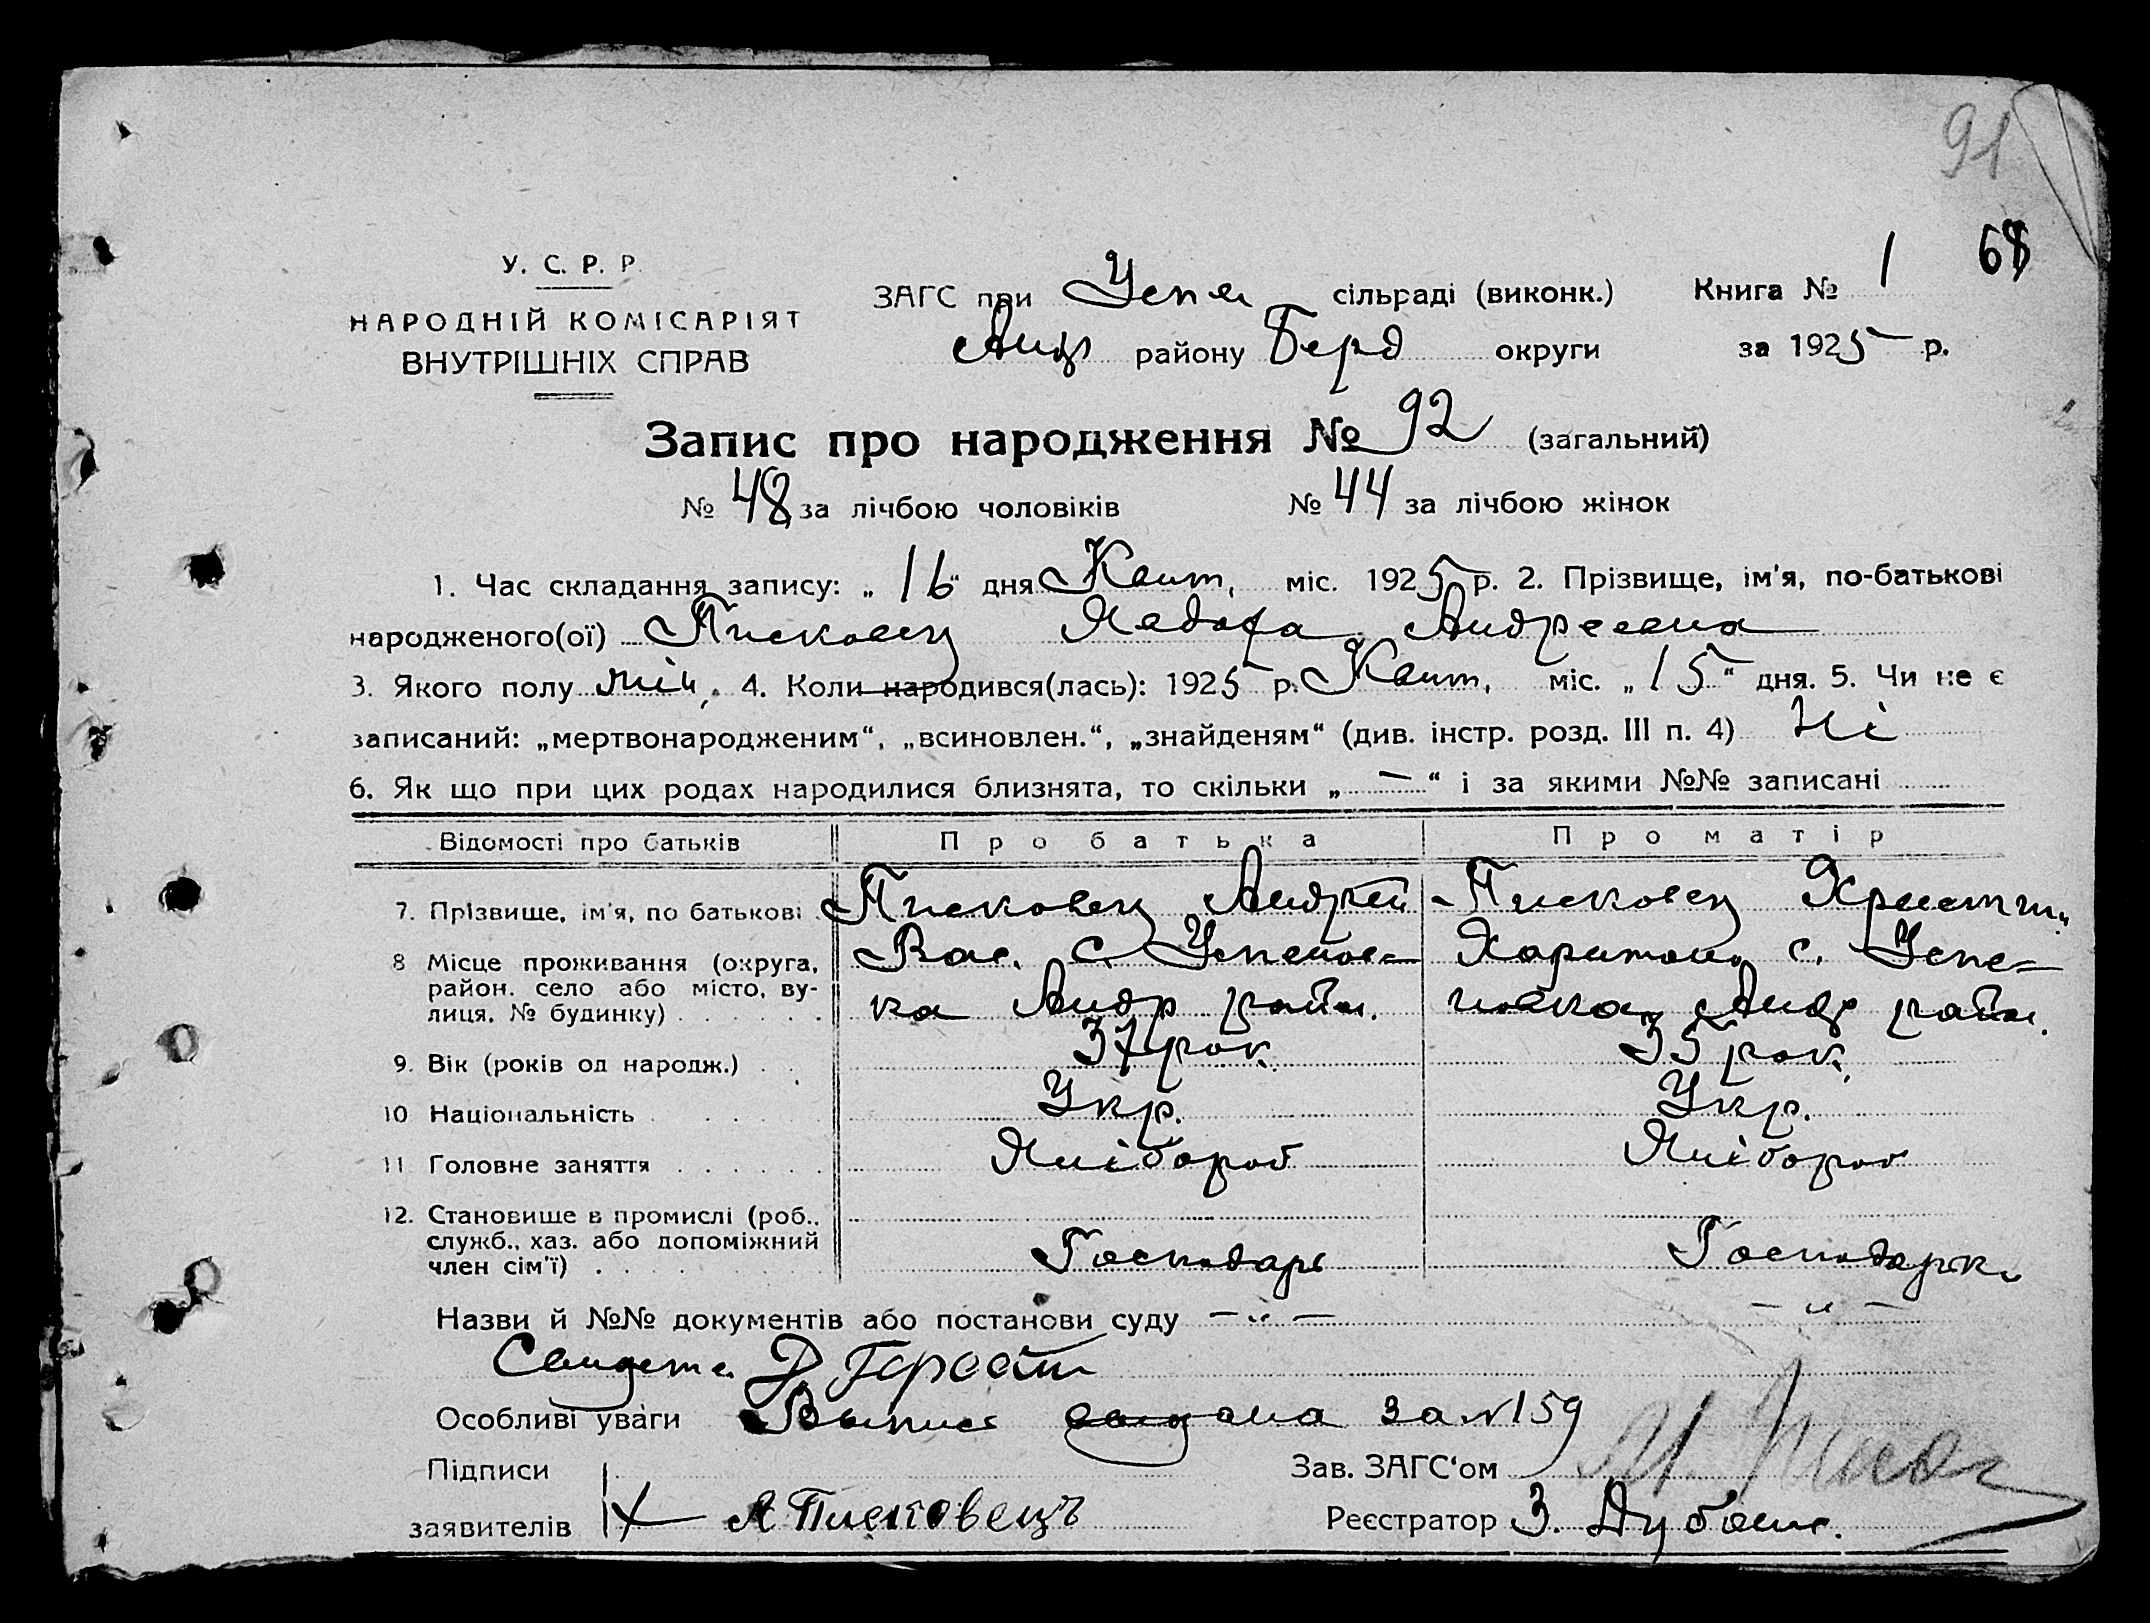 91
68
У. С. Р. Р.
НАРОДНІЙ КОМІСАРІЯТ
ВНУТРІШНІХ СПРАВ
ЗАГС при Успен сільраді (виконк.) Книга № 1
Андр району Берд округи за 1925 р.
Запис про народження № 92 (загальний)
№ 48 за лічбою чоловіків № 44 за лічбою жінок
1. Час складання запису: „16“ дня Квіт. міс. 1925 р. 2. Прізвище, ім'я, по-батькові
народженого(ої)Писковец Федора Андреевна
3. Якого полу жін. 4. Коли народився(лась): 1925 р. Квит. міс. „15“ дня. 5. Чи не є
записаний: „мертвонародженим“, „всиновлен.“, „знайденям“ (див. інстр. розд. III п. 4) Ні
6. Як що при цих родах народилися близнята, то скільки „—“ і за якими №№ записані
Відомості про батьків Про батька Про матір
7. Прізвище, ім'я, по батькові Писковец Андрей Писковец Христин.
8 Місце проживання (округа, Вас. с. Успенов- Харитон. с. Успе-
район, село або місто, ву- ка Андр район. новка, Андр район.
лиця, № будинку)
9. Вік (років од народж.) 37 рок. 35 рок.
10 Національність Укр. Укр.
11 Головне заняття Хлібороб Хлібороб
12. Становище в промислі (роб..
служб., хаз. або допоміжний Господарь Господарка
член сім'ї)
Назви й №№ документів або постанови суду — „ — — „ —
Особливі уваги Выпись выдана за №159
Підписи Зав. ЗАГС'ом
заявителів А Писковецъ Реєстратор З.